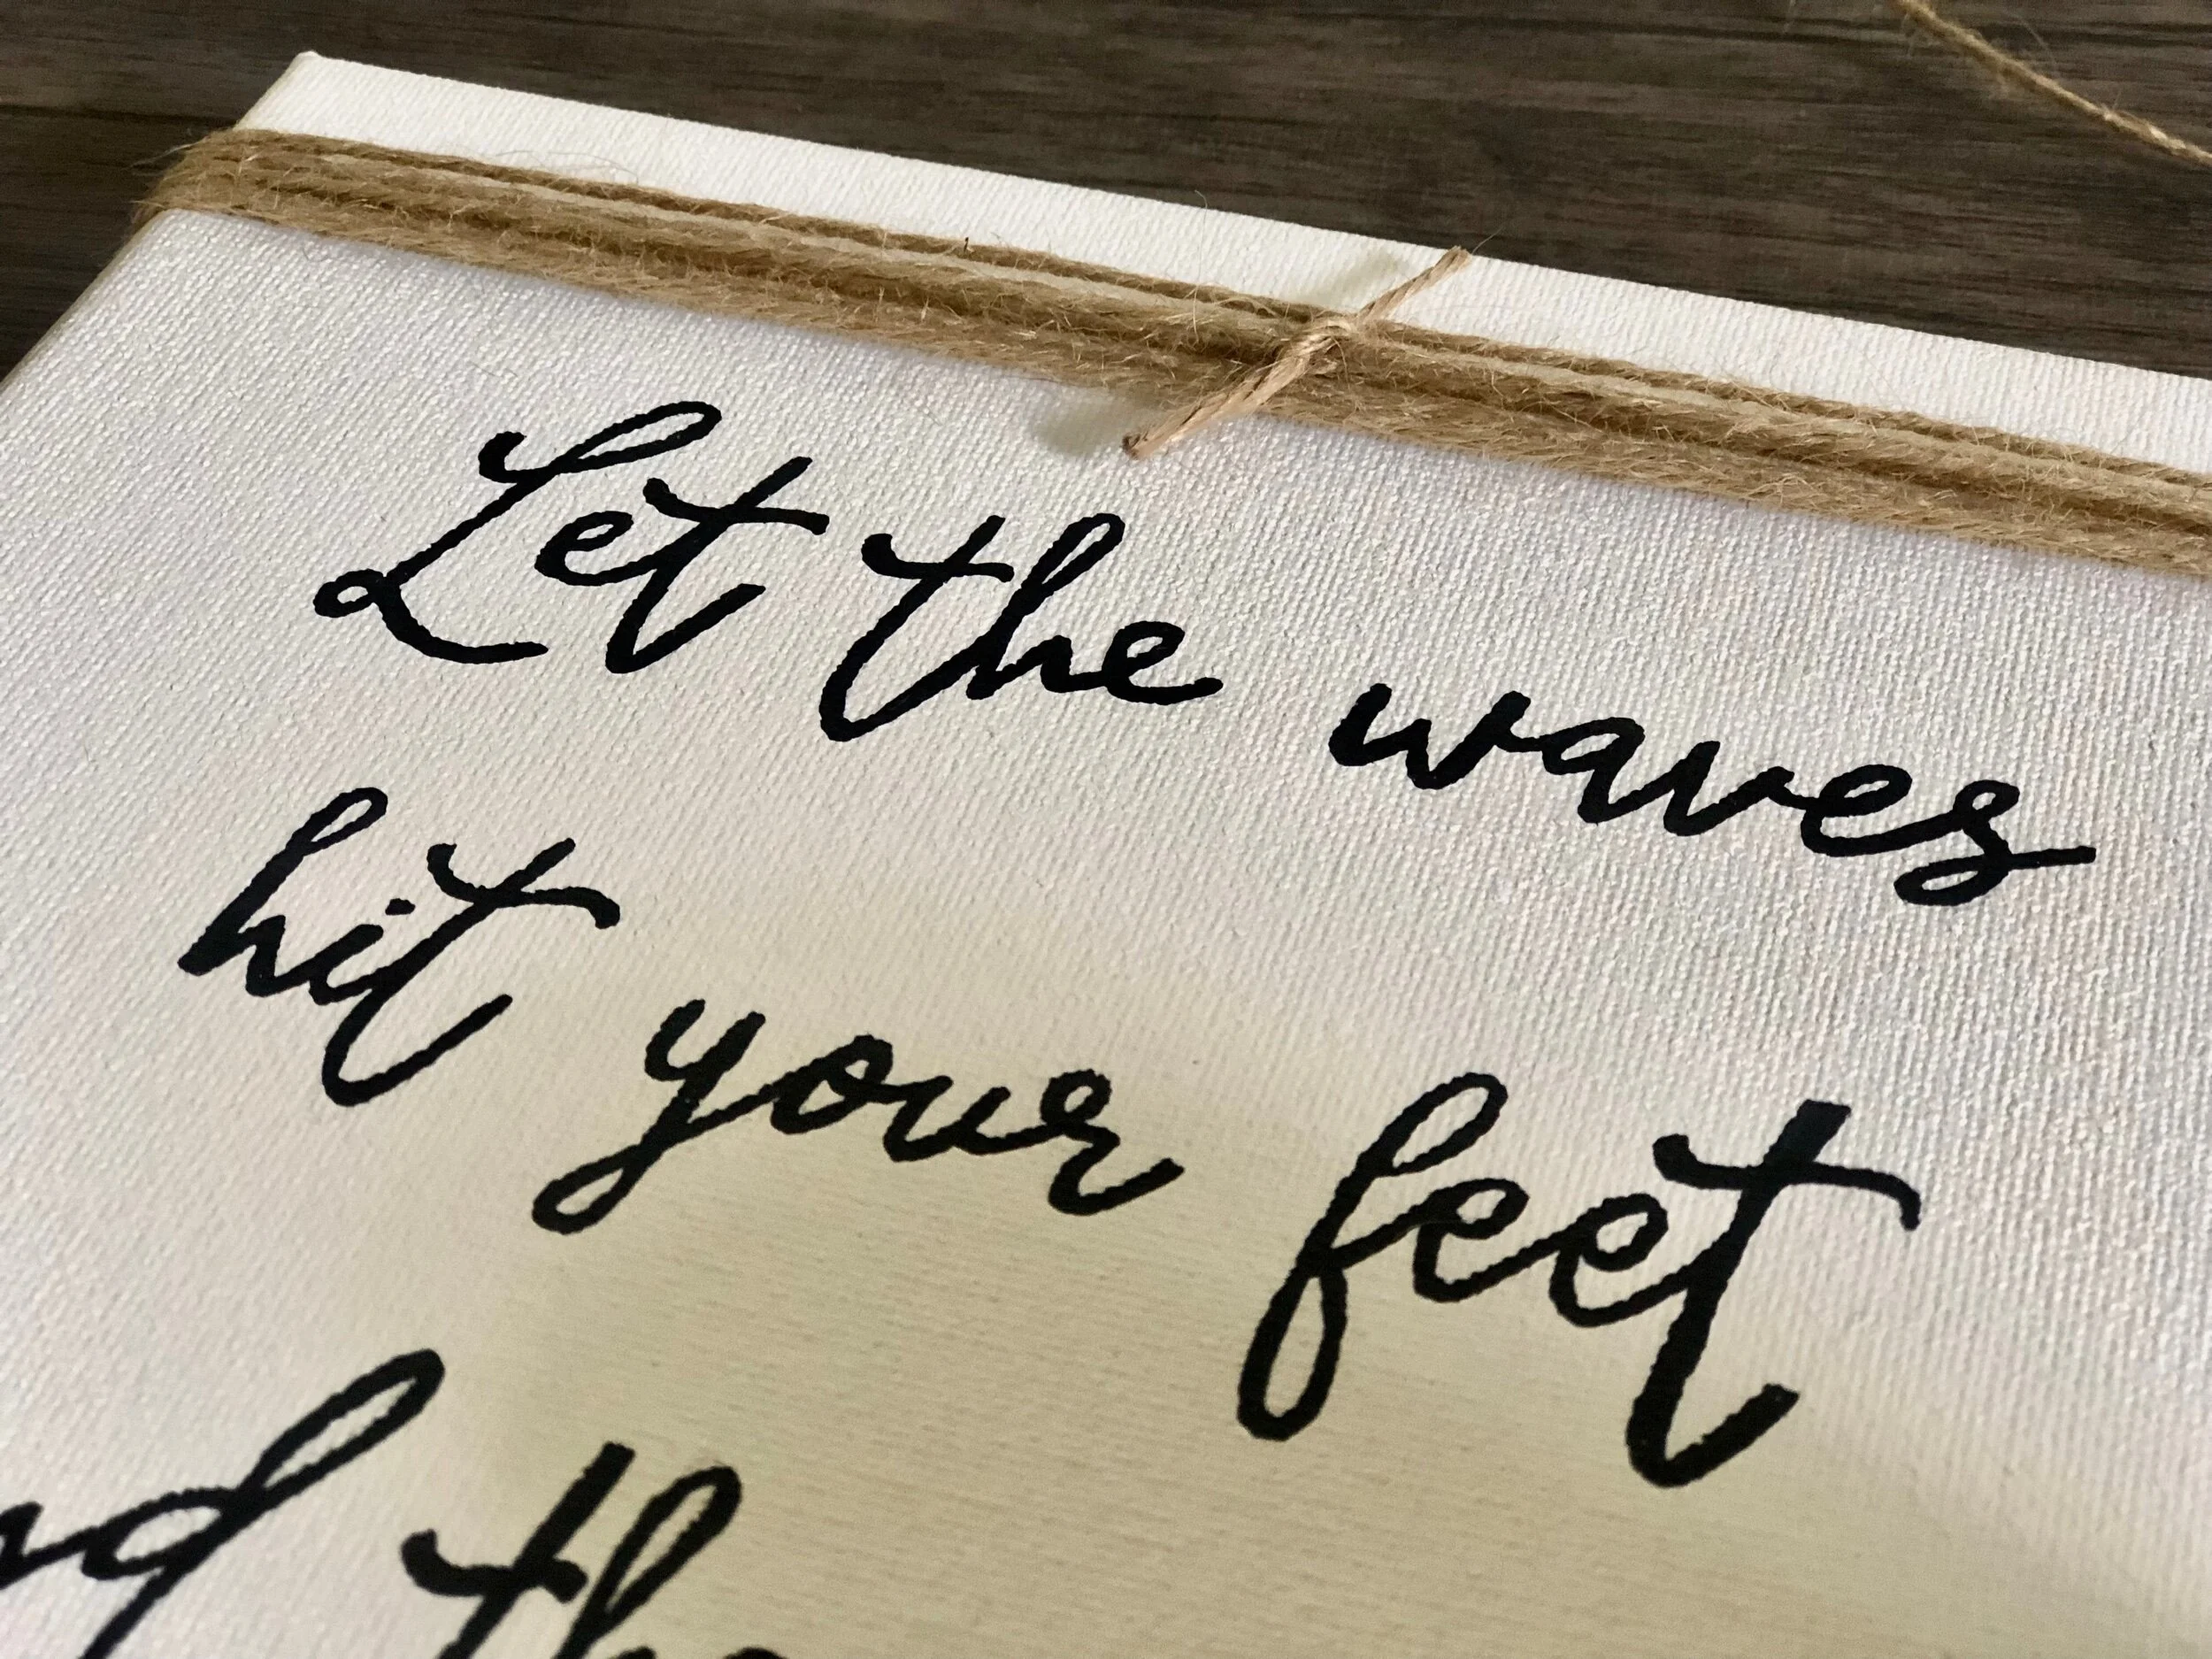 Let the waves
hit your feet